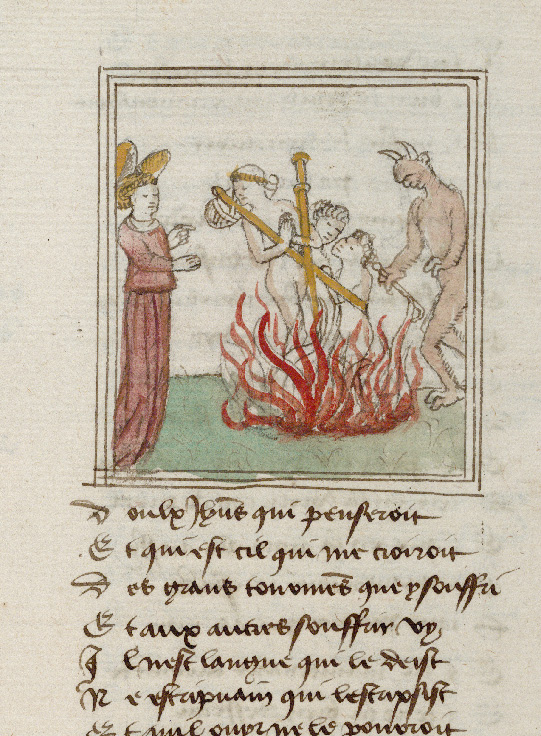 Doulx Jhus qui penseroit
Et qui est cil qui me croiroit
Des grans tourmes que y souffri
Et aux autres souffrir vy
Il nest langue qui le deist
Ne escripuain qui lescrapsist
Et qui louyr ne le pouroit